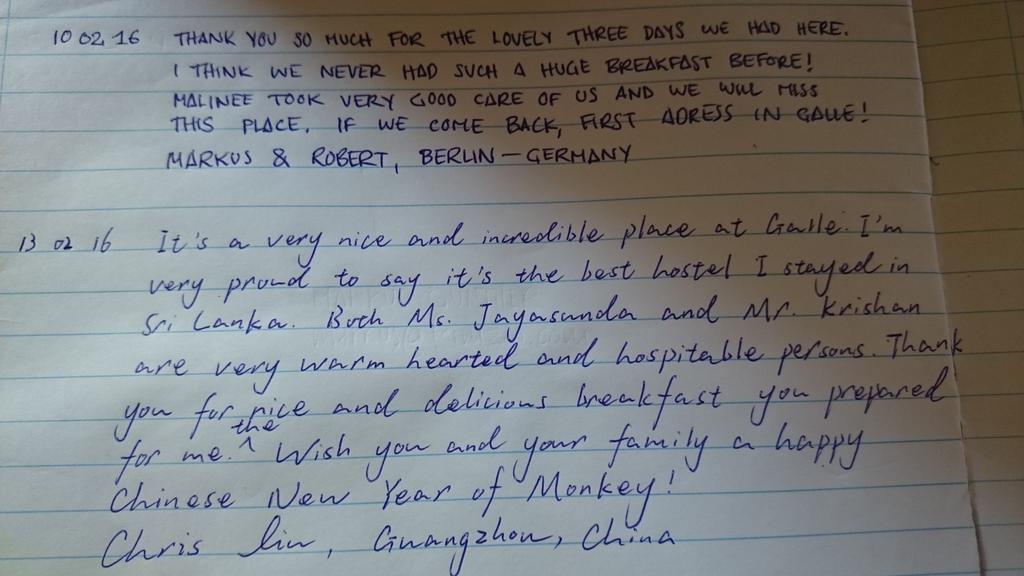 10 02 16 THANK YOU SO MUCH FOR THE LOVELY THREE DAYS WE HAD HERE.
I THINK WE NEVER HAD SUCH A HUGE BREAKFAST BEFORE!
MALINEE TOOK VERY GOOD CARE OF US AND WE WILL MISS
THIS PLACE. IF WE COME BACK, FIRST ADRESS IN GALLE!
MARKUS & ROBERT, BERLIN – GERMANY
13 02 16 It's a very nice and incredible place at Galle. I'm
very proud to say it's the best hostel I stayed in
Sri Lanka. Both Ms. Jayasunda and Mr. Krishan
are very warm hearted and hospitable persons. Thank
you for nice and delicious breakfast you prepared
the
for me. ^ Wish you and your family a happy
Chinese New Year of Monkey!
Chris Liu, Guangzhou, China